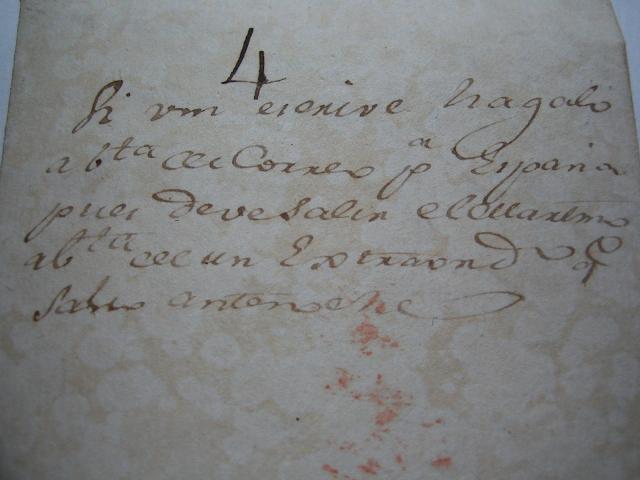 4
Si vm escrive hagalo
a bta del Correo pa España
pues deve salir el
a bta de un Extraord.o q
salio antenoche